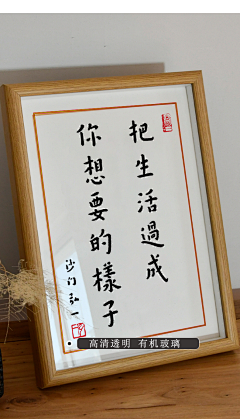 把生活過成
你想要的樣子
沙门弘一
高清透明 有机玻璃